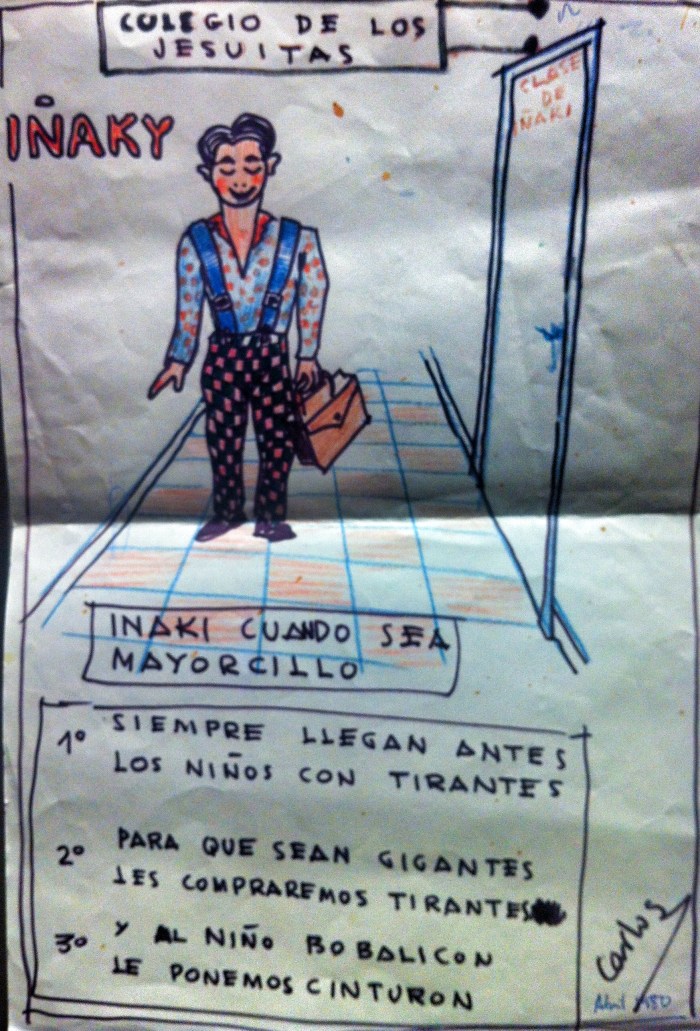 COLEGIO DE LOS
JESUITAS
CLASE
DE
IÑAKI
IÑAKY
INAKI CUANDO SEA
MAYORCILLO
1º SIEMPRE LLEGAN ANTES
LOS NIÑOS CON TIRANTES
2º PARA QUE SEAN GIGANTES
LES COMPRAREMOS TIRANTES
3º Y AL NIÑO BOBALICON
LE PONEMOS CINTURON
Carlos
Abril 1980